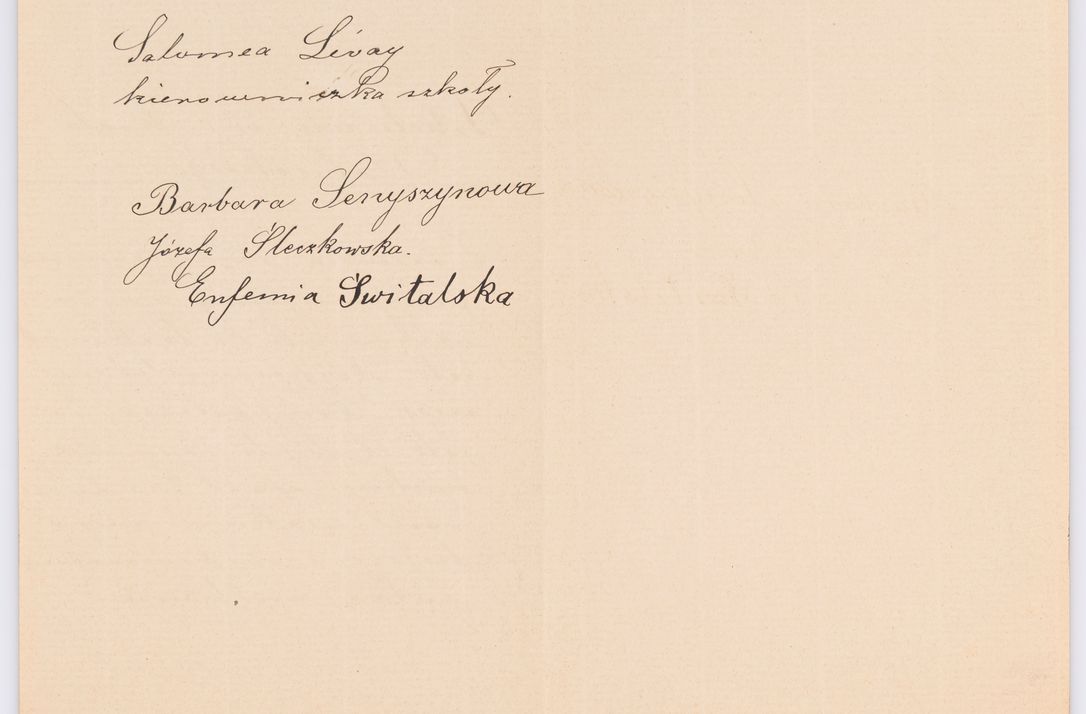 Salomea Lévay
kierowniczka szkoły.
Barbara Senyszynowa
Józefa Śleczkowska.
Eufemia Świtalska